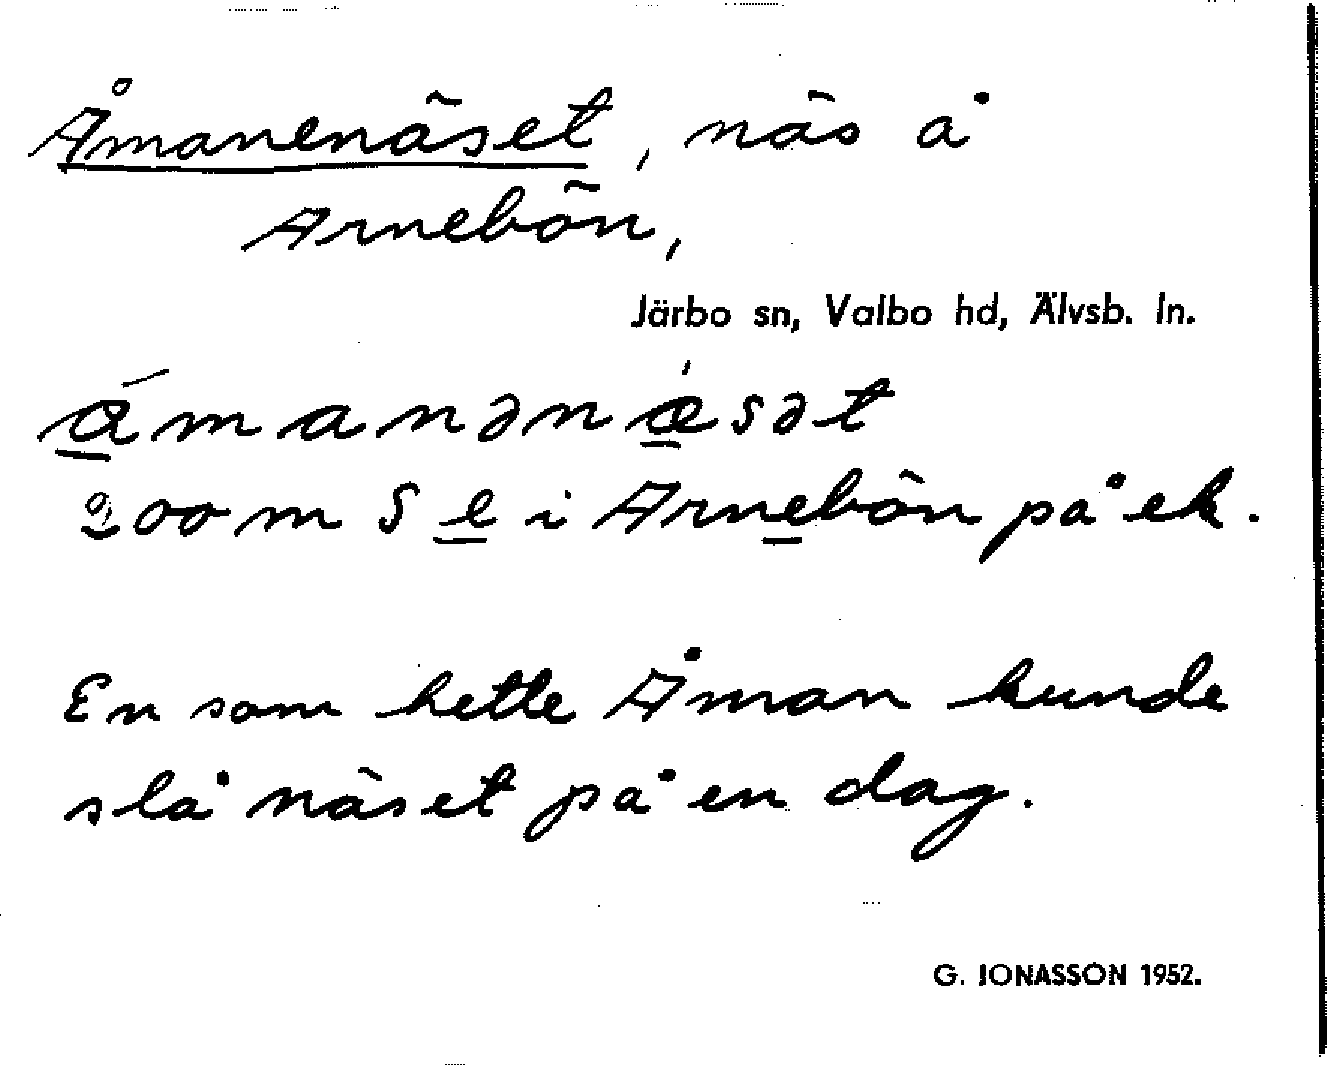 Åmanenäset, näs å
Arnebön,
Järbo sn, Valbo hd, Älvsb. ln.
åmanənæ̀sət
200 m S e i Arnebön på ek.
En som hette Åman kunde
slå näset på en dag.
G. JONASSON 1952.